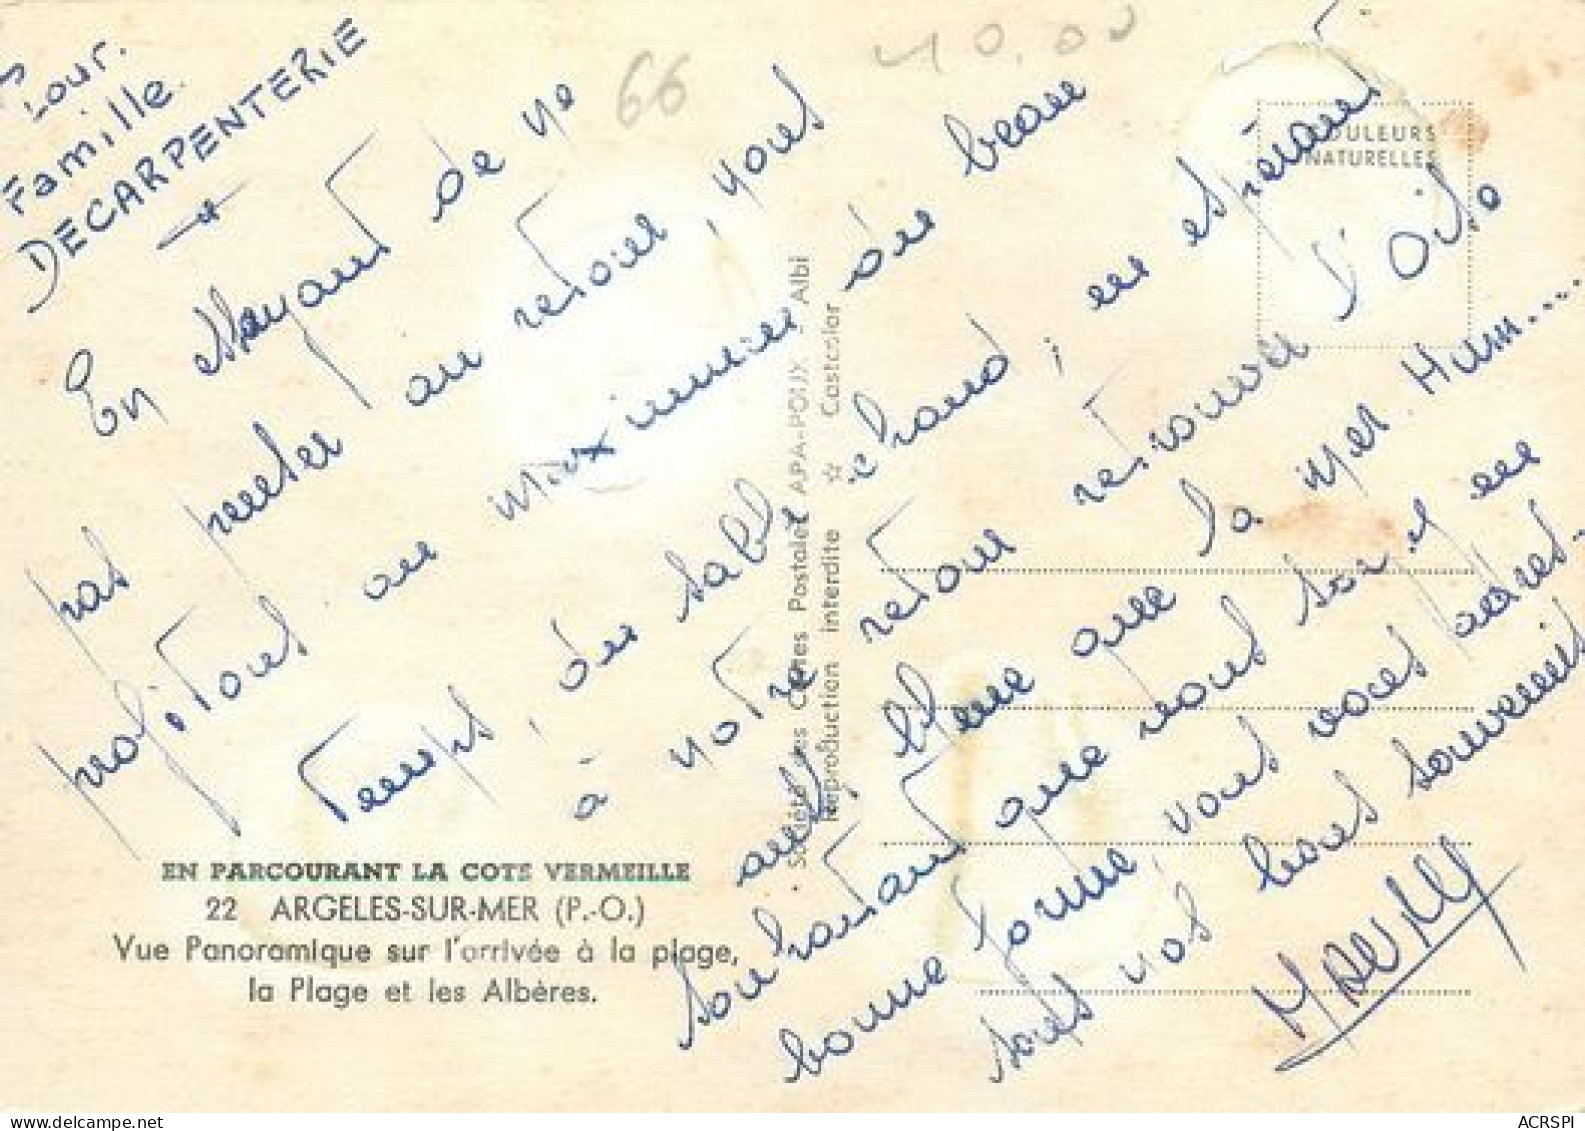 Pour.
Famille.
DECARPENTERIE
66
40.00
COULEURS
NATURELLES
En essayant de ne
pas penser au retour, nous
profitons au maximum du beau
temps, du sable chaud, en espérant
à notre retour retrouver l'Oise
aussi bleue que la mer Hum....
souhaitant que nous soyez en
bonne forme, nous vous adres-
sons nos bons souvenirs
EN PARCOURANT LA COTE VERMEILLE
22 ARGELES-SUR-MER (P.-O.)
Vue Panoramique sur l'arrivée à la plage,
la Plage et les Albères.
Société des Cartes Postales APA-POUX - Albi
Reproduction interdite ☆ Castcolor
ACRSPI